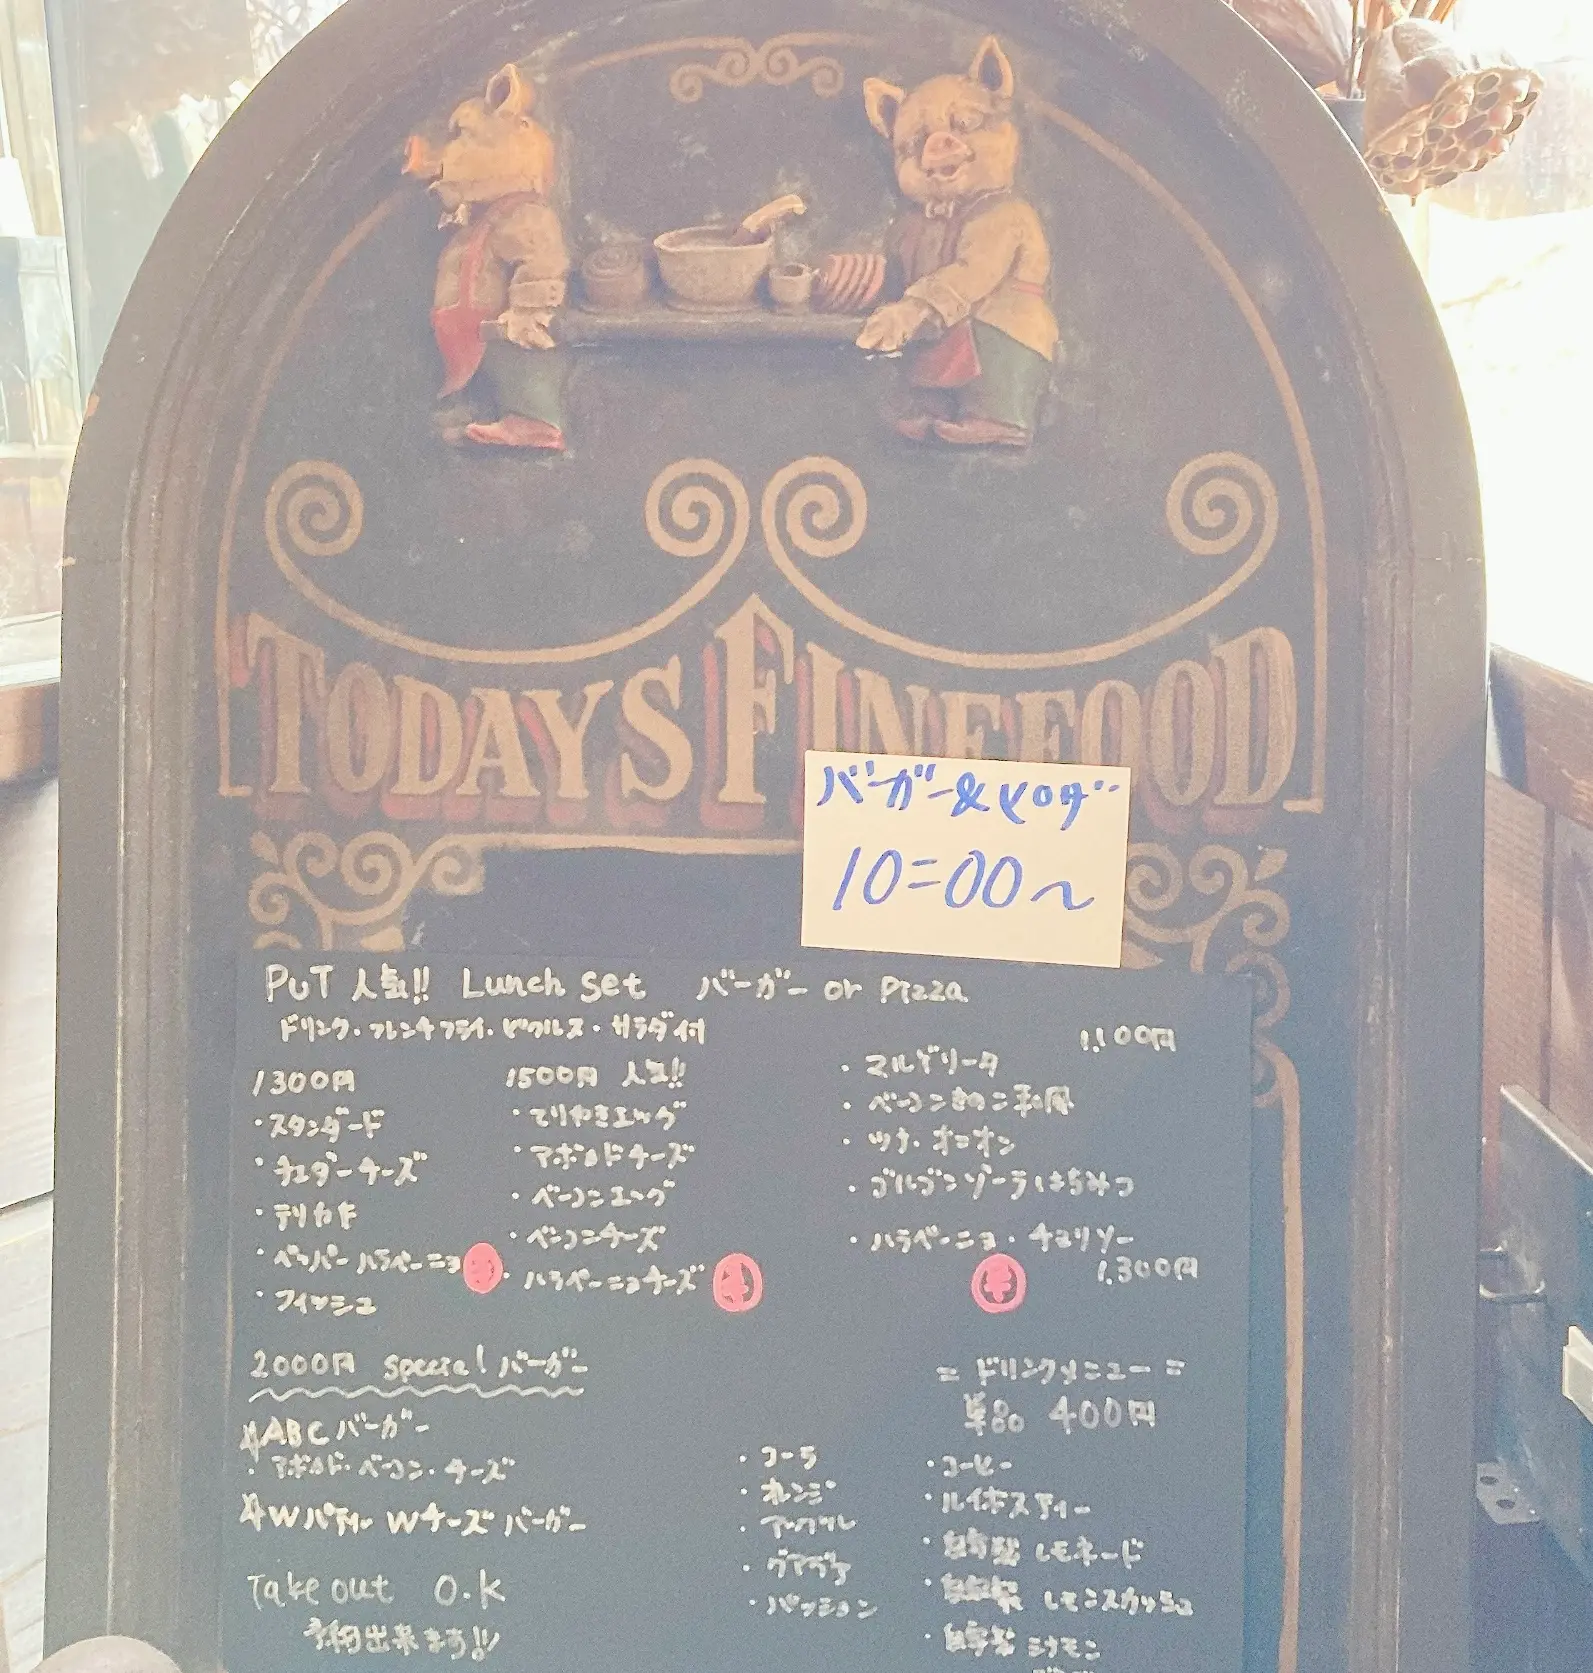 TODAYS FINEFOOD
バーガー&ピザ
10:00〜
PUT 人気!! Lunch set バーガー or Pizza
ドリンク・フレンチフライ・ピクルス・サラダ付
1300円
・スタンダード
・チェダーチーズ
・テリカド
・ペッパーハラペーニョ 辛
・フィッシュ
1500円 人気!!
・てりやきエッグ
・アボカドチーズ
・ベーコンエッグ
・ベーコンチーズ
・ハラペーニョチーズ 辛
1,100円
・マルゲリータ
・ベーコンきのこ和風
・ツナ・オニオン
・ゴルゴンゾーラはちみつ
・ハラペーニョ・チョリソー
辛 1,300円
2000円 special バーガー
ABCバーガー
・アボカド・ベーコン・チーズ
Wパティー Wチーズバーガー
Take out O.K
予約出来ます!!
=ドリンクメニュー=
単品 400円
・コーラ
・オレンジ
・アップル
・グアバ
・パッション
・コーヒー
・ルイボスティー
・自家製 レモネード
・自家製 レモンスカッシュ
・自家製 シナモン